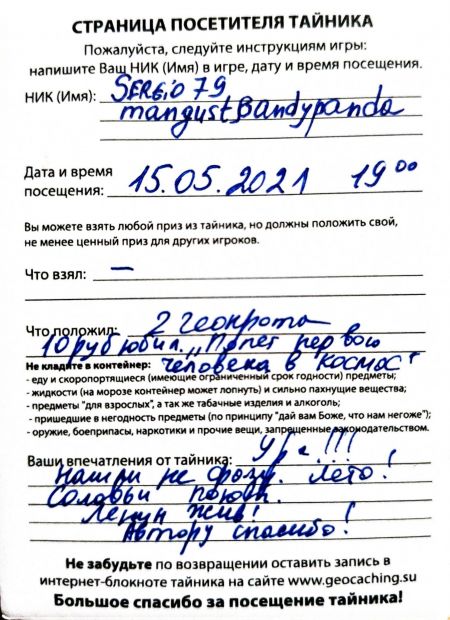 СТРАНИЦА ПОСЕТИТЕЛЯ ТАЙНИКА
Пожалуйста, следуйте инструкциям игры:
напишите Ваш НИК (Имя) в игре, дату и время посещения.
НИК (Имя): SERGIO 79
mangust, Bandypanda
Дата и время
посещения: 15.05.2021 19 00
Вы можете взять любой приз из тайника, но должны положить свой,
не менее ценный приз для других игроков.
Что взял: —
Что положил: 2 геокрота
10 руб юбил. „Полет первого
Не кладите в контейнер: человека в космос"
- еду и скоропортящиеся (имеющие ограниченный срок годности) предметы;
- жидкости (на морозе контейнер может лопнуть) и сильно пахнущие вещества;
- предметы "для взрослых", а так же табачные изделия и алкоголь;
- пришедшие в негодность предметы (по принципу "дай вам Боже, что нам негоже");
- оружие, боеприпасы, наркотики и прочие вещи, запрещенные законодательством.
Ваши впечатления от тайника: Ура!!!
Нашли не сразу. Лето!
Соловьи поют.
Ленин жив!
Автору спасибо!
Не забудьте по возвращении оставить запись в
интернет-блокноте тайника на сайте www.geocaching.su
Большое спасибо за посещение тайника!